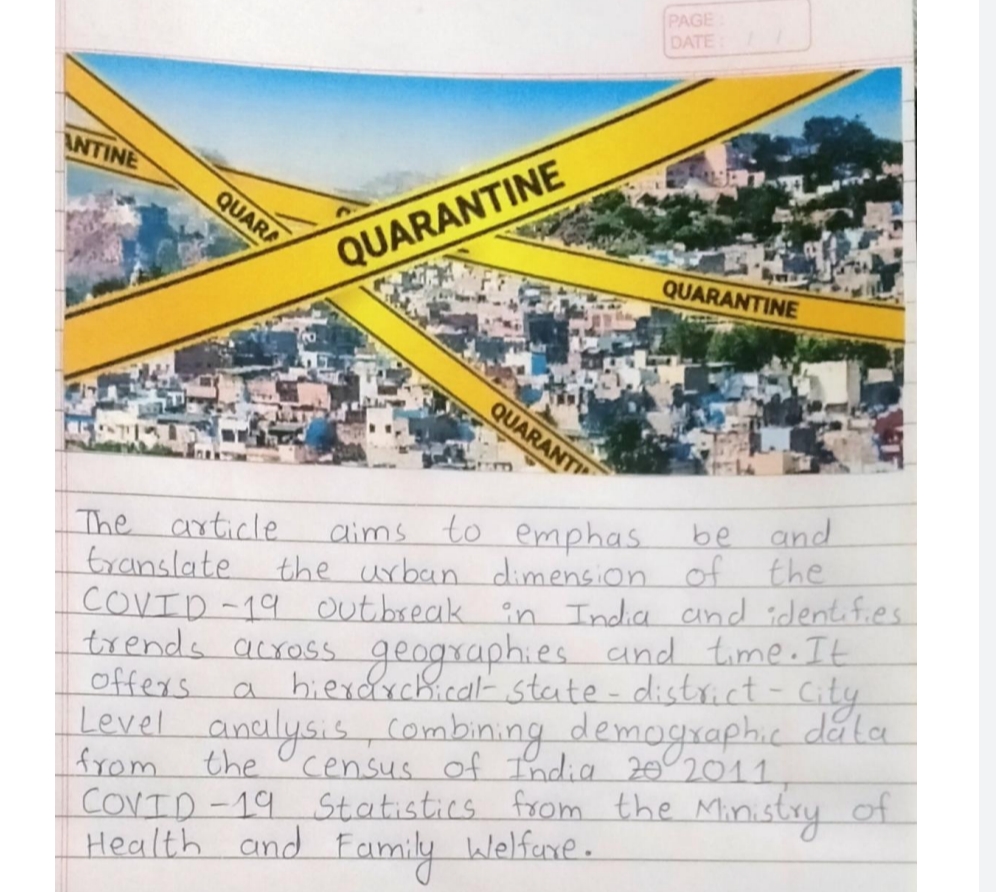 PAGE:
DATE: / /
ANTINE
QUARA
QUARANTINE
QUARANTINE
QUARANTI
The article aims to emphas be and
translate the urban dimension of the
COVID-19 outbreak in India and identifies
trends across geographies and time. It
offers a hierarchical-state-district-City
Level analysis, combining demographic data
from the census of India 2011,
COVID-19 Statistics from the Ministry of
Health and Family Welfare.